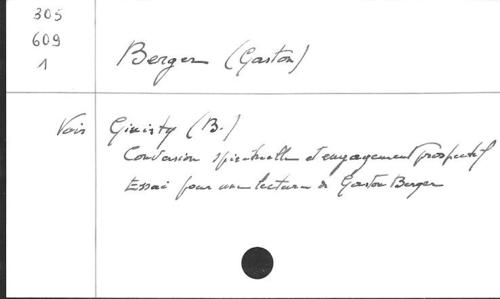 305
609
1
Berger (Gaston)
Voir Ginisty (B.)
Conversion spirituelle et engagement prospectif
Essai pour une lecture de Gaston Berger